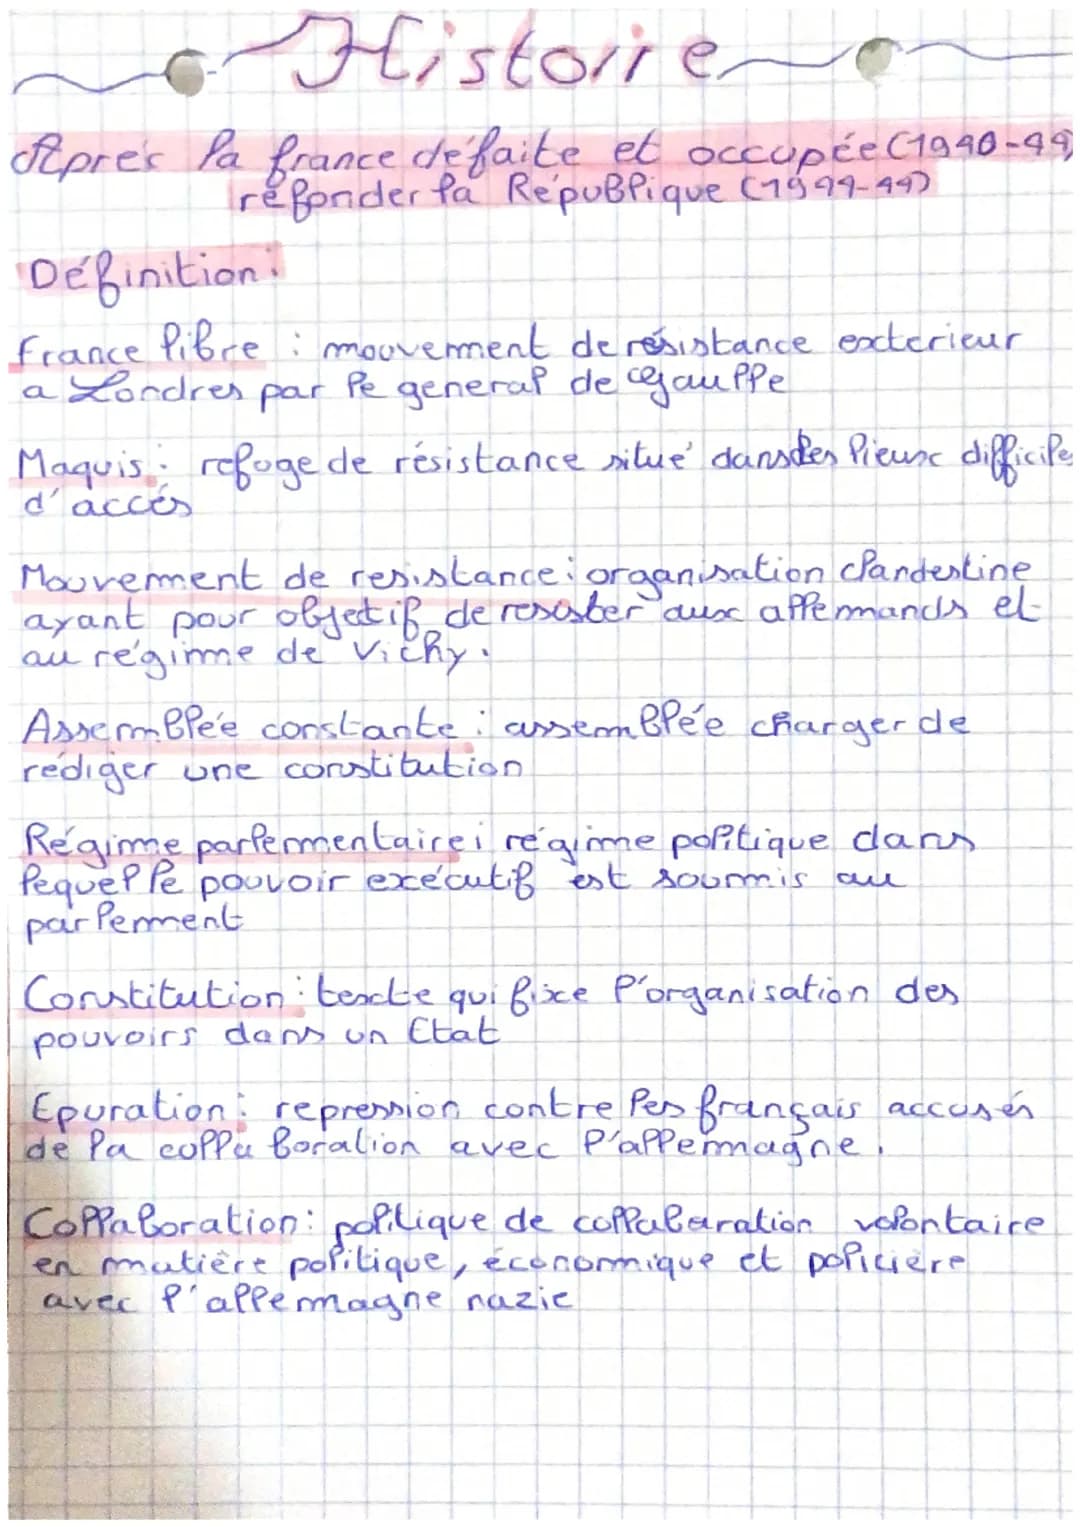 Histoire
Après la france défaite et occupée (1940-44)
réfonder la République (1944-44)
Définition :
France libre : mouvement de résistance exterieur
a Londres par le general de Gaulle
Maquis : refuge de résistance situé dans des lieux difficiles
d'accés
Mouvement de resistance : organisation clandestine
ayant pour objectif de resister aux allemands et
au régime de Vichy.
Assemblée constante : assemblée charger de
rédiger une constitution
Régime parlementaire : régime politique dans
lequel le pouvoir exécutif est soumis au
parlement
Constitution : texte qui fixe l'organisation des
pouvoirs dans un Etat
Epuration : repression contre les français accusés
de la collaboration avec l'allemagne.
Collaboration : politique de collabaration volontaire
en matière politique, économique et policière
avec l'allemagne nazie